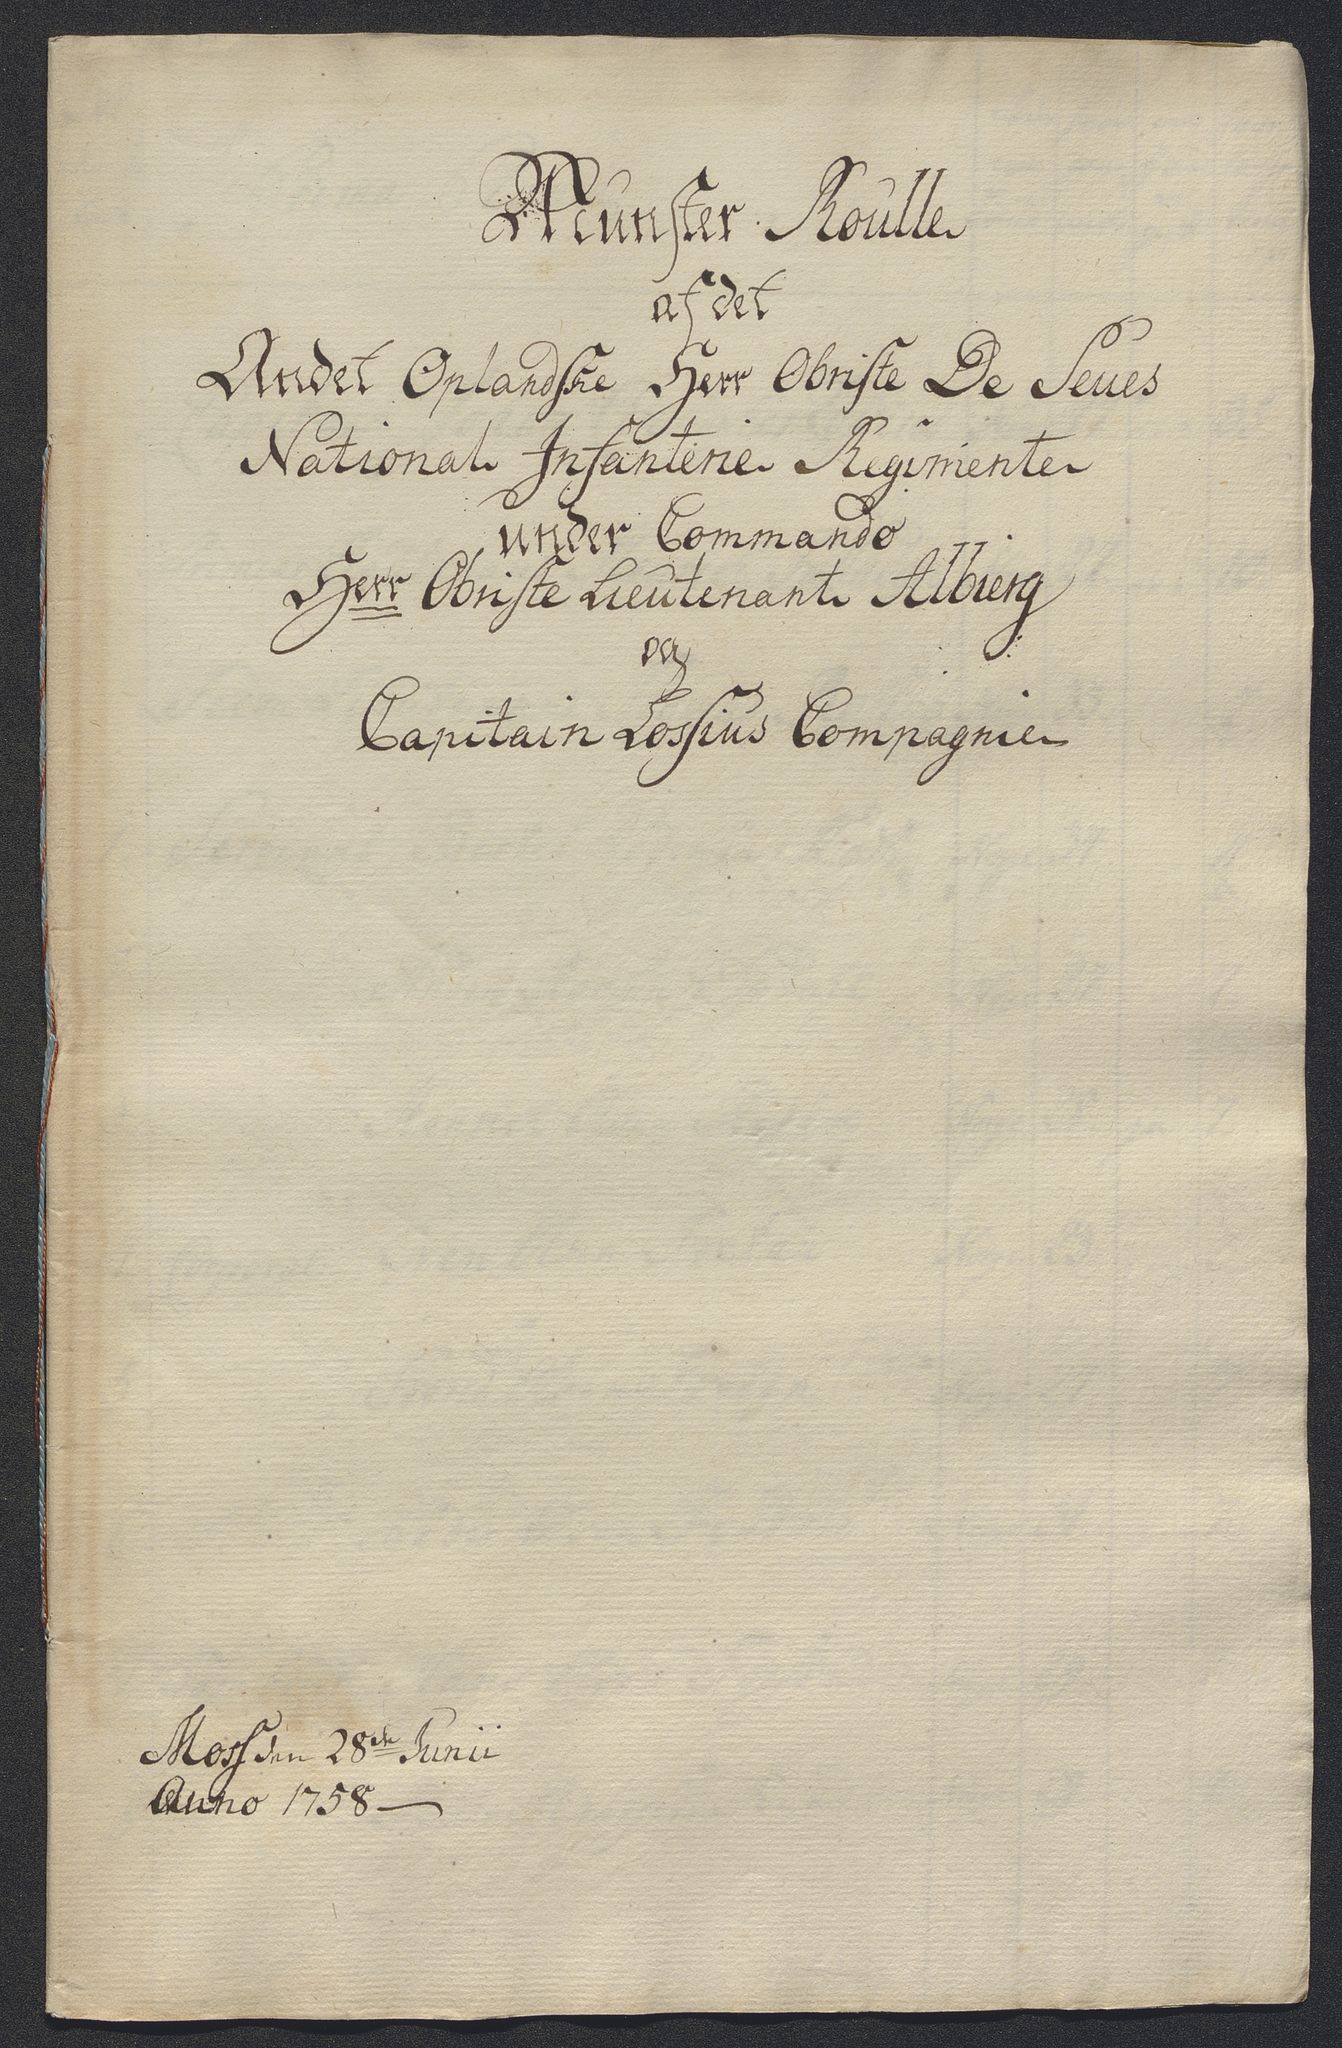 Munster Roulle
af det
Andet Oplandske Herr Obriste De Seues
National Infanterie Regimente
under Commando
Herr Obriste Lieutenant Albierg
og
Capitain Lossius Compagnie
Moss den 28de Junii
Anno 1758